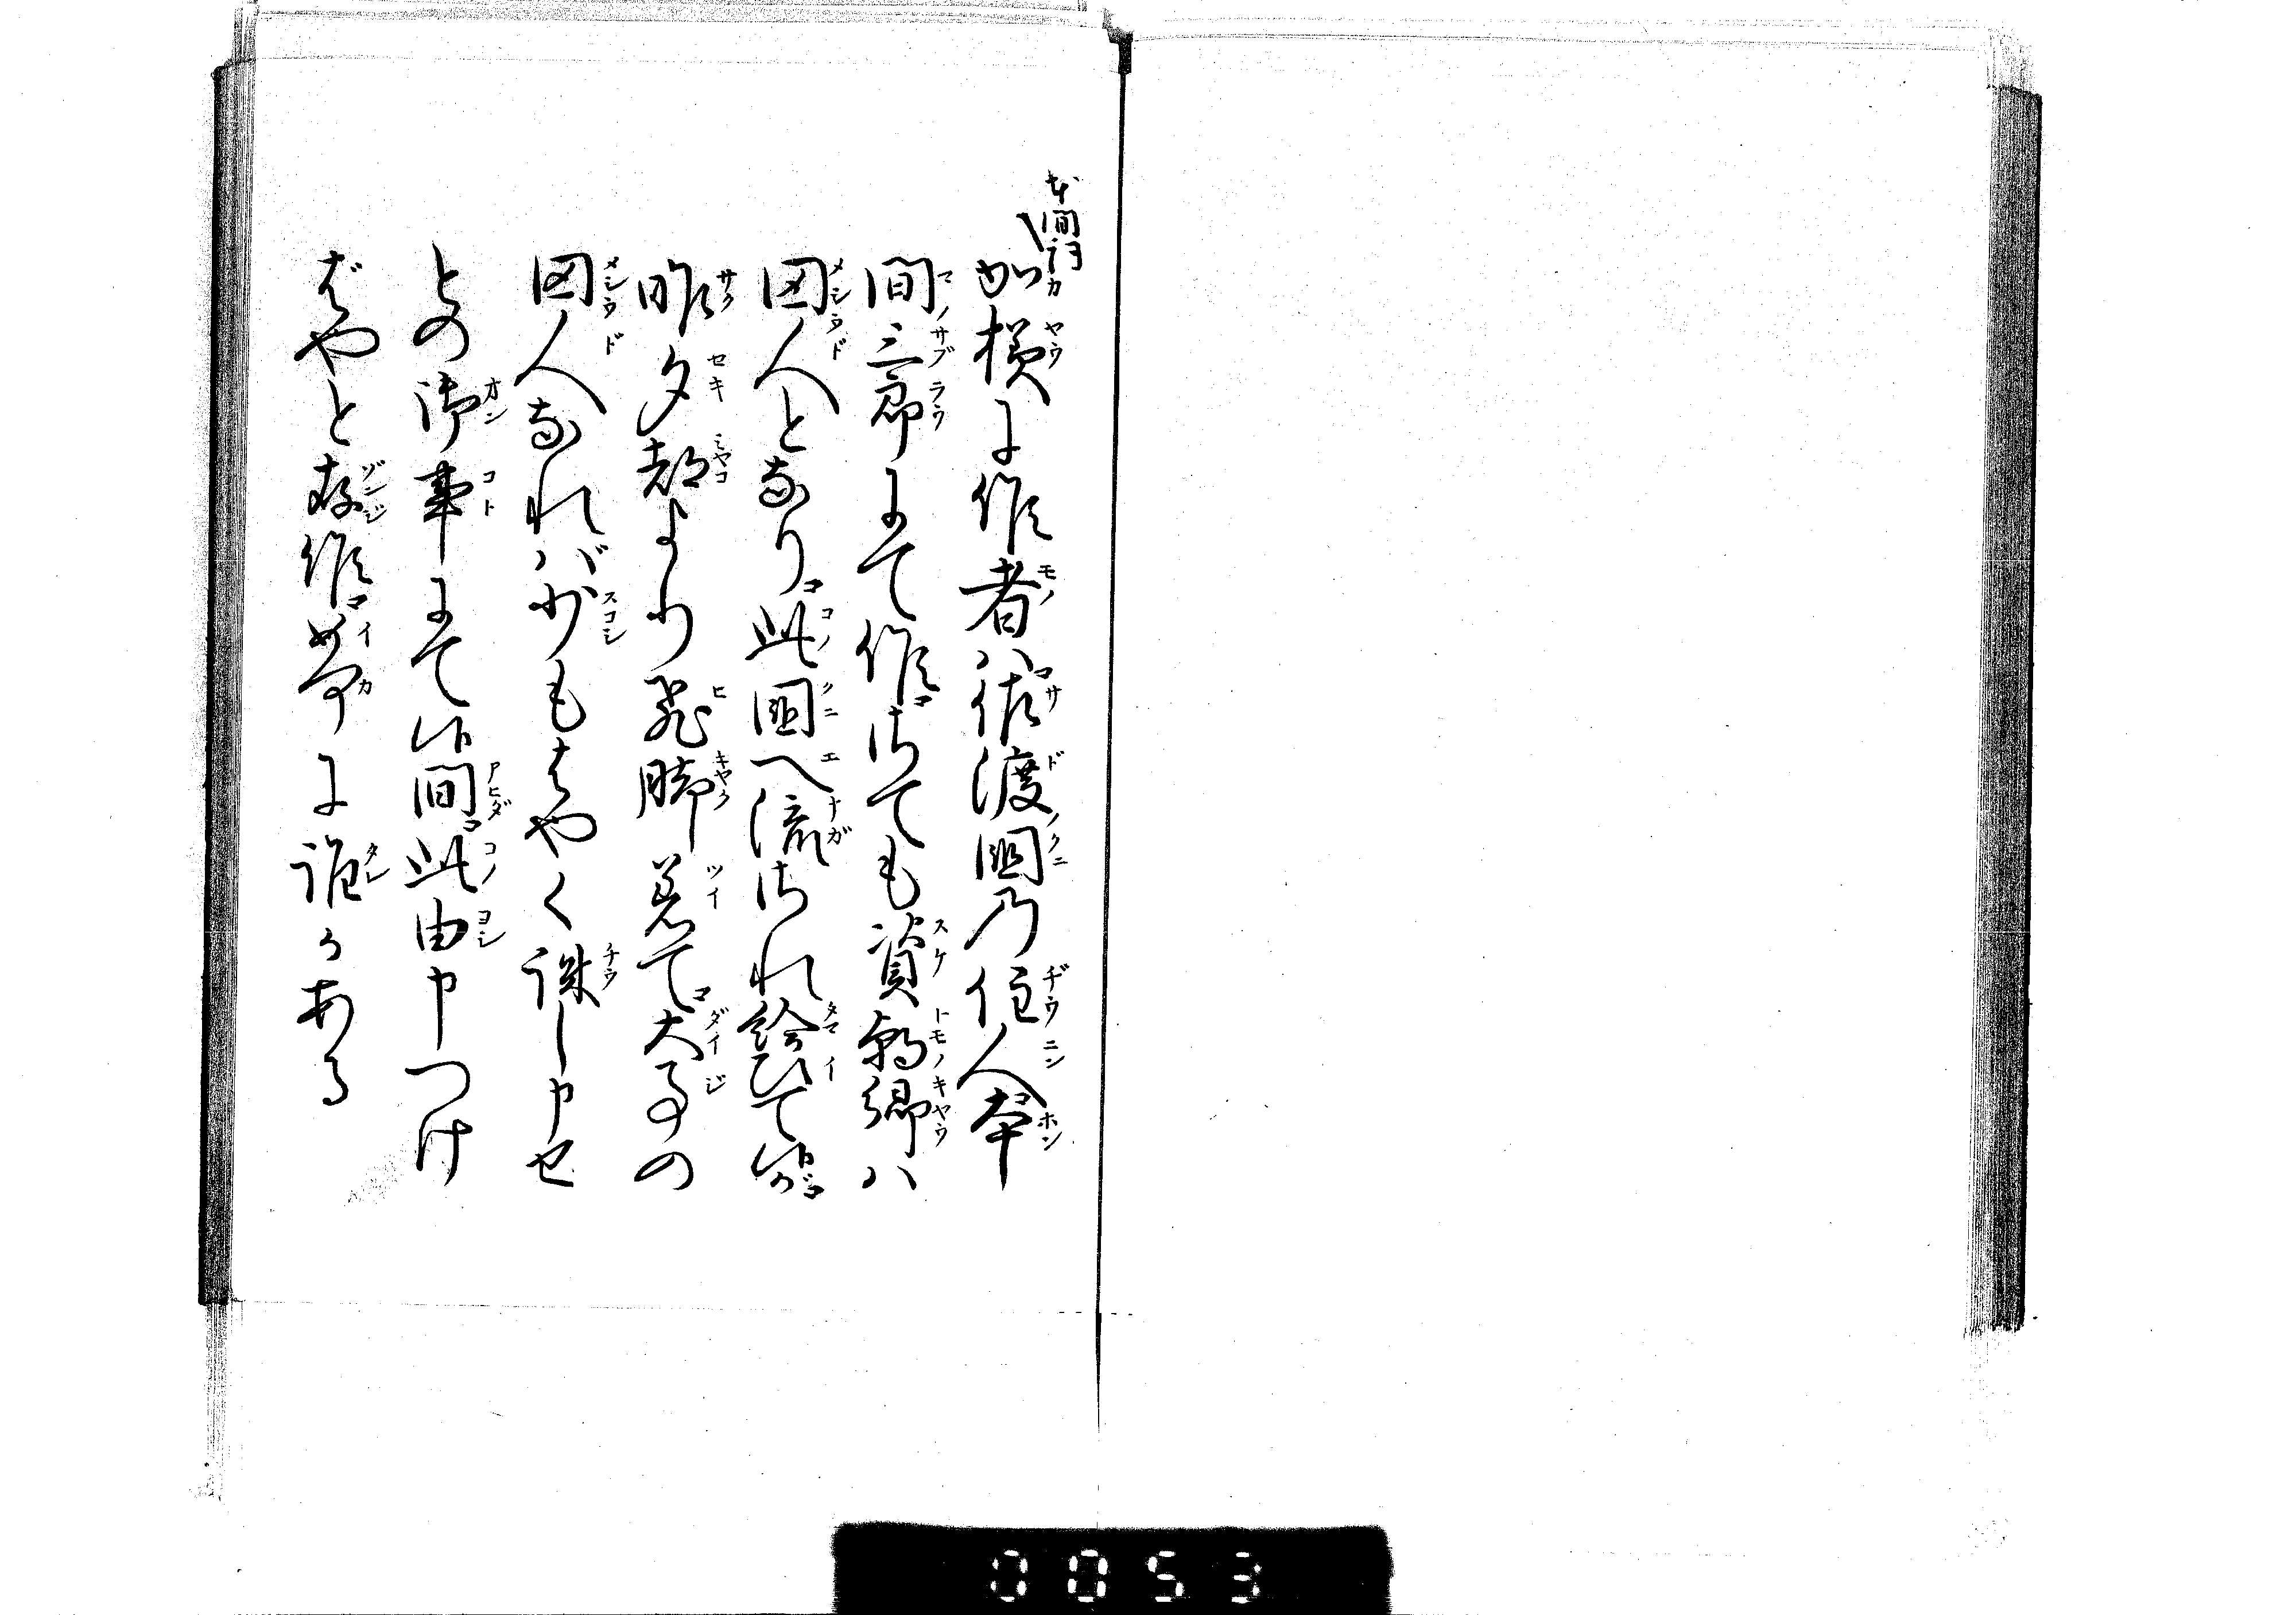 本間詞
加様に候者ハ佐渡國乃住人本
間三郎にて候さても資朝卿ハ
囚人となり此國へ流され給ひて候が
昨夕都より飛脚着て大事の
囚人なれバ少もはやく誅し申せ
との御事にて候間此由申つけ
ばやと存候如何に誰かある
0053